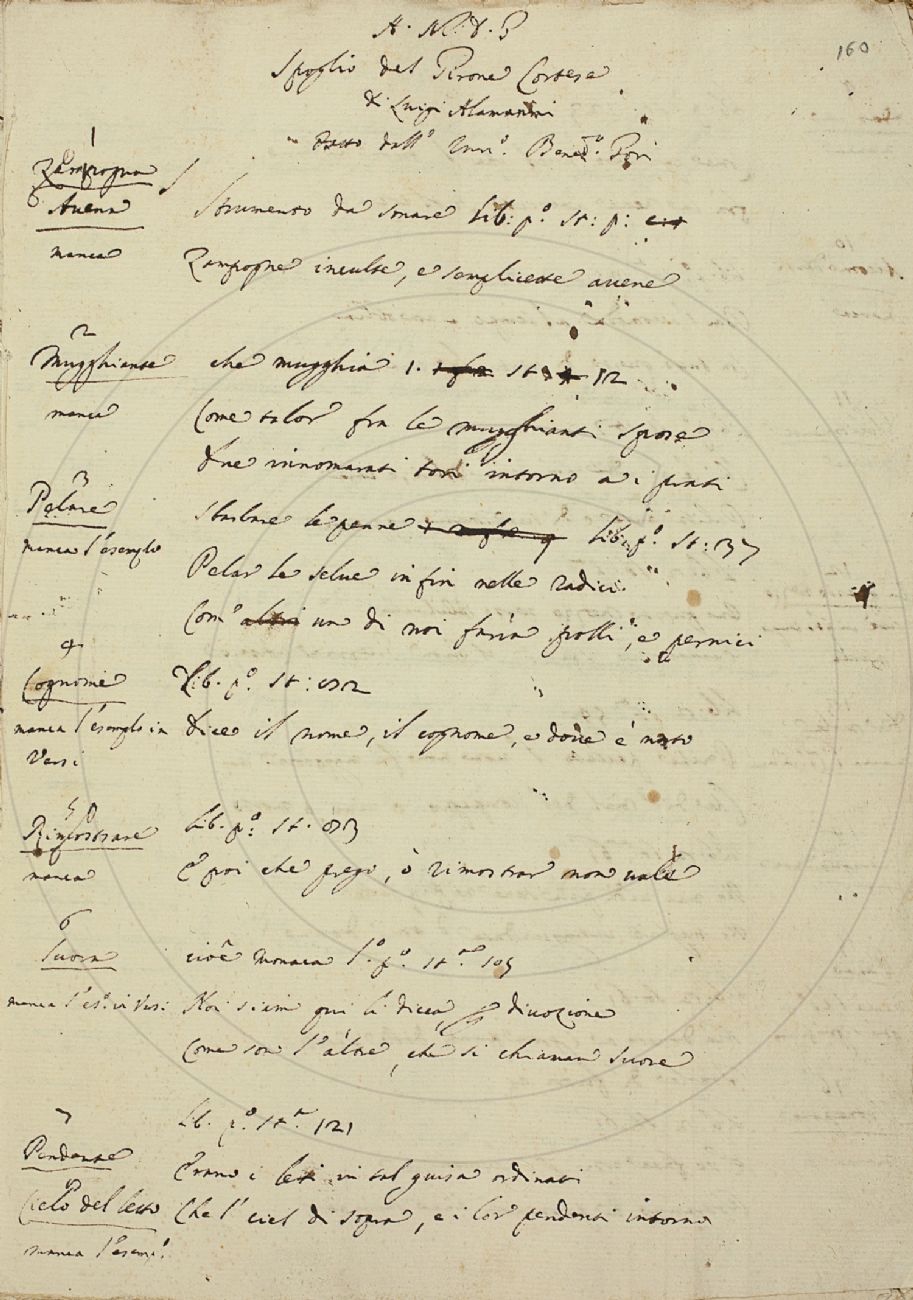 160
A. N. D. P
Spoglio del Girone Cortese
di Luigi Alamanni
fatto dall' Inn.º Bened.º Fori
1
Zampogna
Avena
manca
Strumento da sonare Lib: pº St: p:
Zampogne inculte, e semplicette avene
2
Mugghiante
manca
che mugghia 1. St: 12
Come talor fra le mugghianti spose
Due innamorati tori intorno a i prati
3
Pelare
manca l'esemplo
Sbarbare le penne Lib. pº. St: 37
Pelar le selve in fin nelle radici
Com' un di noi farìa polli, e pernici
4
Cognome
manca l'esemplo in
versi
Lib. pº. St: 52
Dice il nome, il cognome, e dove è nato
5
Rimostrare
manca
Lib. pº. St. 83
E poi che prego, ò rimostrar non vale
6
Suora
manca l'esº. in versi
cioè Monaca Lº. pº. St. 105
Noi siam qui li dicea, divozione
Come son l'altre, che si chiaman Suore
7
Pendente
Cielo del letto
manca l'esemº.
Lib. pº. St. 121
Erano i letti in tal guisa ordinati
Che l' ciel di sopra, e i lor pendenti intorno